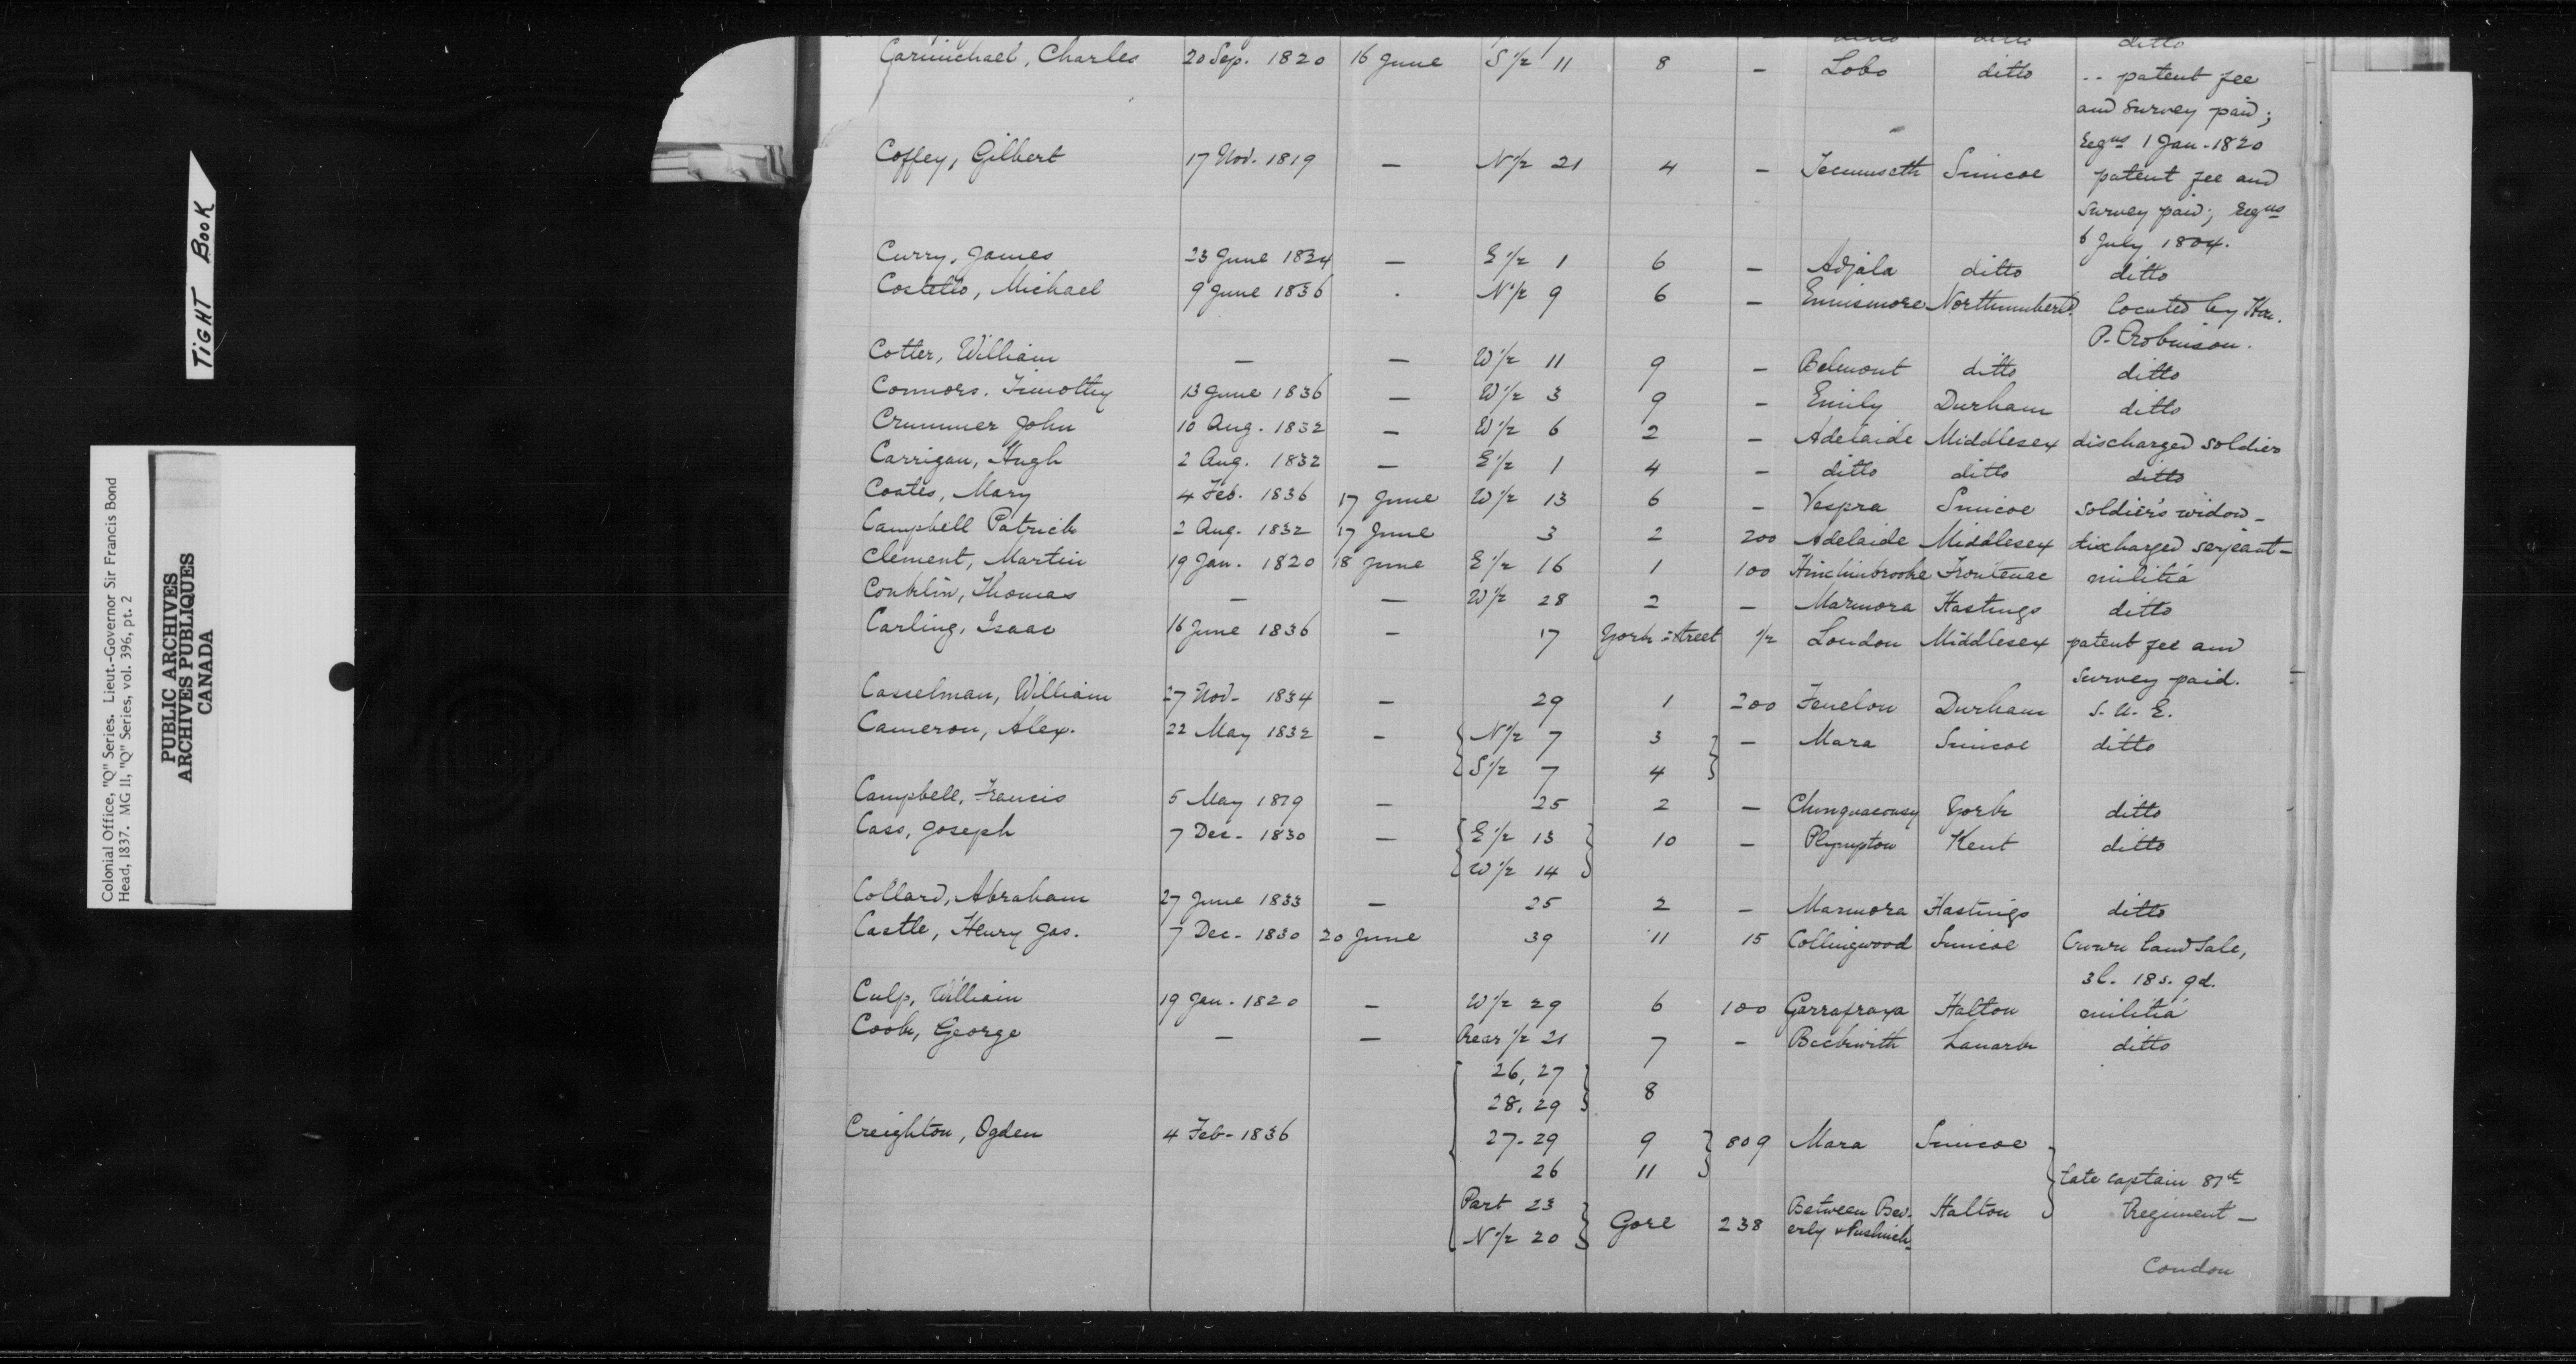 TIGHT BOOK
Colonial Office, "Q" Series. Lieut.-Governor Sir Francis Bond
Head, 1837. MG 11, "Q" Series, vol. 396, pt. 2
PUBLIC ARCHIVES
ARCHIVES PUBLIQUES
CANADA
ditto ditto ditto
Carmichael, Charles 20 Sep. 1820 16 June S 1/2 11 8 – Lobo ditto -- patent fee
and survey paid;
Regns 1 Jan - 1820
Coffey, Gilbert 17 Nov. 1819 – N 1/2 21 4 – Tecumseth Simcoe patent fee and
survey paid; Regns
6 July 1804.
Curry, James 23 June 1834 – E 1/2 1 6 – Adjala ditto ditto
Costello, Michael 9 June 1836 . N 1/2 9 6 – Ennismore Northumberld. located by Hon.
P. Robinson.
Cotter, William – – W 1/2 11 9 – Belmont ditto ditto
Connors. Timothy 13 June 1836 – W 1/2 3 9 – Emily Durham ditto
Crummer John 10 Aug. 1832 – W 1/2 6 2 – Adelaide Middlesex discharged soldier
Carrigan, Hugh 2 Aug. 1832 – E 1/2 1 4 – ditto ditto ditto
Coates, Mary 4 Feb. 1836 17 June W 1/2 13 6 – Vespra Simcoe soldier's widow –
Campbell Patrick 2 Aug. 1832 17 June 3 2 200 Adelaide Middlesex discharged serjeant –
Clement, Martin 19 Jan. 1820 18 June E 1/2 16 1 100 Hinchinbrooke Frontenac militia
Conklin, Thomas – – W 1/2 28 2 – Marmora Hastings ditto
Carling, Isaac 16 June 1836 – 17 York street 1/2 London Middlesex patent fee and
survey paid.
Casselman, William 27 Nov - 1834 – 29 1 200 Fenelon Durham S. U. E.
Cameron, Alex. 22 May 1832 – { N 1/2 7 3 } – Mara Simcoe ditto
{ S 1/2 7 4 }
Campbell, Francis 5 May 1819 – 25 2 – Chinguacousy York ditto
Cass, Joseph 7 Dec - 1830 – { E 1/2 13 } 10 – Plympton Kent ditto
{ W 1/2 14 }
Collard, Abraham 27 June 1833 – 25 2 – Marmora Hastings ditto
Castle, Henry Jas. 7 Dec - 1830 20 June 39 11 15 Collingwood Simcoe Crown land sale,
3l. 18s. 9d.
Culp, William 19 Jan. 1820 – W 1/2 29 6 100 Garrafraxa Halton militia
Cook, George – – Rear 1/2 21 7 – Beckwith Lanark ditto
26, 27
28, 29 8
Creighton, Ogden 4 Feb - 1836 27-29 9 } 809 Mara Simcoe
26 11 } late captain 81st
Part 23 } Gore 238 Between Bev- Halton Regiment –
N 1/2 20 } erly & Puslinch
Condon